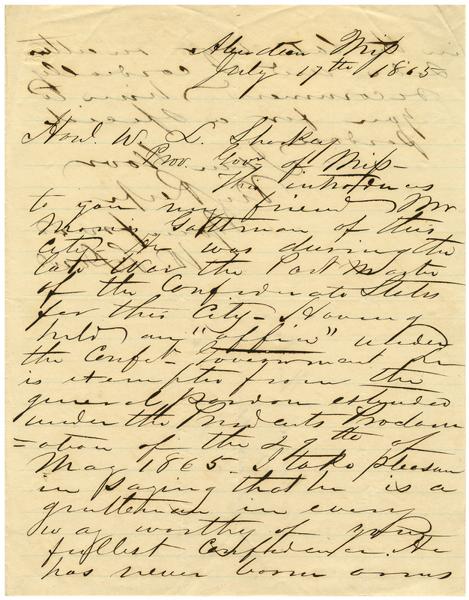 Aberdeen Miss
July 17th 1865
Honl. W. L. Sharkey
Prov. Govr of Miss-
This introduces
to you my friend Mr
Morris Gattman of this
city- He was during the
late War the Post Master
of the Confederate States
for this City- Having
held any "office" under
the Confet- Government he
is exempted from the
general pardon extended
under the Presidents Proclam
=ation of the 29th of
May 1865- I take pleasure
in saying that he is a
gentleman in every
way worthy of your
fullest confidence. He
has never borne arms